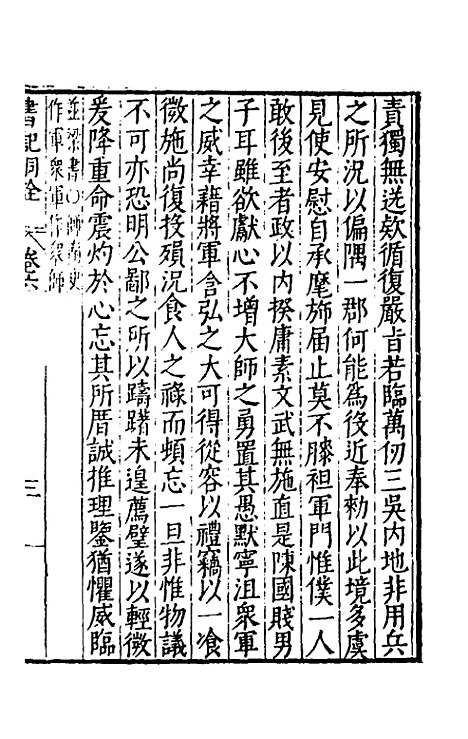 責獨無送欵循復嚴旨若臨萬仞三吳内地非用兵
之所況以偏隅一郡何能爲役近奉勑以此境多虞
見使安慰自承麾斾届止莫不膝袒軍門惟僕一人
敢後至者政以内揆庸素文武無施直是陳國賤男
子耳雖欲獻心不增大師之勇置其愚默寧沮衆軍
之威幸藉將軍含弘之大可得從容以禮竊以一飡
微施尚復投殞況食人之祿而頓忘一旦非惟物議
不可亦恐明公鄙之所以躊躇未遑薦璧遂以輕微
爰降重命震灼於心忘其所厝誠推理鑒猶懼威臨
並梁書〇師南史
作軍衆軍作衆師
書記洞詮 卷六 三